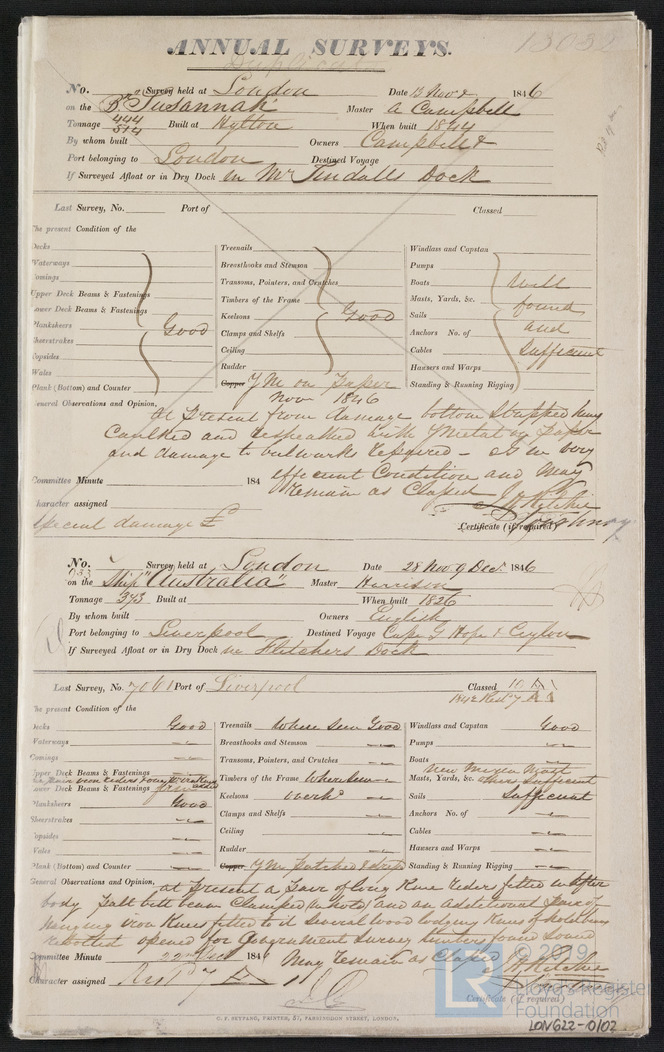 13032
ANNUAL SURVEYS.
Duplicate
No. Survey held at London Date 13 Nov 1846
on the Bq Susannah Master A Campbell
Tonnage 444 514 Built at Hylton When built 1844
By whom built Owners Campbell &
Port belonging to London Destined Voyage
If Surveyed Afloat or in Dry Dock in Mr Tindalls Dock
Last Survey, No. Port of Classed
The present Condition of the
Decks
Waterways
Comings
Upper Deck Beams & Fastenings
Lower Deck Beams & Fastenings
Planksheers
Sheerstrakes
Topsides
Wales
Plank (Bottom) and Counter
Good
Treenails
Breasthooks and Stemson
Transoms, Pointers, and Crutches
Timbers of the Frame
Keelsons
Clamps and Shelfs
Ceiling
Rudder
Copper Y M on Paper
Nov 1846
Good
Windlass and Capstan
Pumps
Boats
Masts, Yards, &c.
Sails
Anchors No. of
Cables
Hawsers and Warps
Standing & Running Rigging
Well
found
and
Sufficient
General Observations and Opinion,
at Present from damage bottom Stripped
Caulked and resheathed with Y Metal on paper
and damage to bulwarks repaired - is in very
efficient Condition and May
Remain as Classed
Committee Minute 184
Character assigned
J H Ritchie
Special damage £
Certificate (if required)
No. Survey held at London Date 28 Nov. 9 Dec. 1846
on the Ship "Australia" Master Harrison
Tonnage 393 Built at When built 1826
By whom built Owners English
Port belonging to Liverpool Destined Voyage Cape G Hope & Ceylon
If Surveyed Afloat or in Dry Dock in Fletchers Dock
Last Survey, No. 7061 Port of Liverpool Classed 10 A1
The present Condition of the
Decks Good
Waterways
Comings
Upper Deck Beams & Fastenings
Lower Deck Beams & Fastenings
Planksheers Good
Sheerstrakes
Topsides
Wales
Plank (Bottom) and Counter
Treenails Where Seen Good
Breasthooks and Stemson
Transoms, Pointers, and Crutches
Timbers of the Frame Where seen
Keelsons
Clamps and Shelfs
Ceiling
Rudder
Copper Y M Patched
Windlass and Capstan Good
Pumps
Boats
New Mizen Mast
Masts, Yards, &c. Sufficient
Sails Sufficient
Anchors No. of
Cables
Hawsers and Warps
Standing & Running Rigging
General Observations and Opinion, at Present a Pair of long Knee riders fitted in After
body and an Additional Pair of
hanging iron Knees fitted to it Several Wood lodging Knees of hold beams
opened for Government Survey timbers found sound
May Remain as Classed
Committee Minute 22nd Dec 184
Character assigned
J H Ritchie
Certificate (if required)
C. F. SEYFANG, PRINTER, 57, FARRINGDON STREET, LONDON.
LR
© 2019
Lloyd's Register
Foundation
LON622-0102